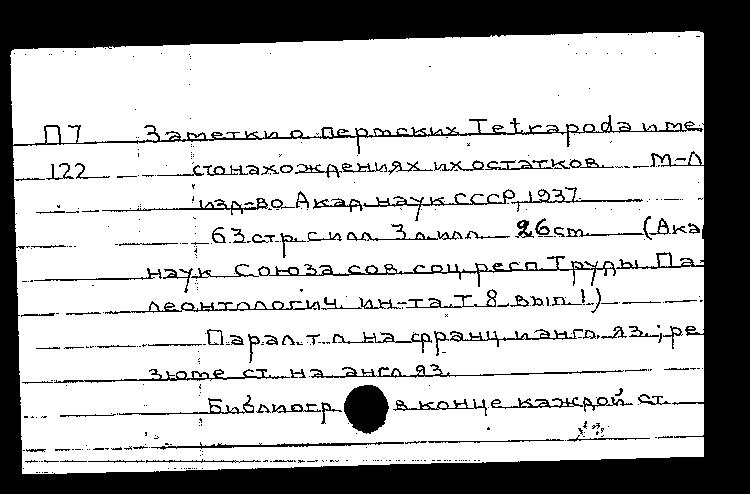 П7 Заметки о пермских Tetrapoda и ме
122 стонахождениях их остатков. М-Л
изд-во Акад. наук СССР, 1937.
63 стр. с илл. 3 л. илл. 26 cm. (Ака
наук Союза сов. соц. респ. Труды Па-
леонтологич. ин-та. т. 8 вып. 1)
Парал. т. л. на франц. и англ. яз.; ре
зюме ст. на англ. яз.
Библиогр в конце каждой ст.